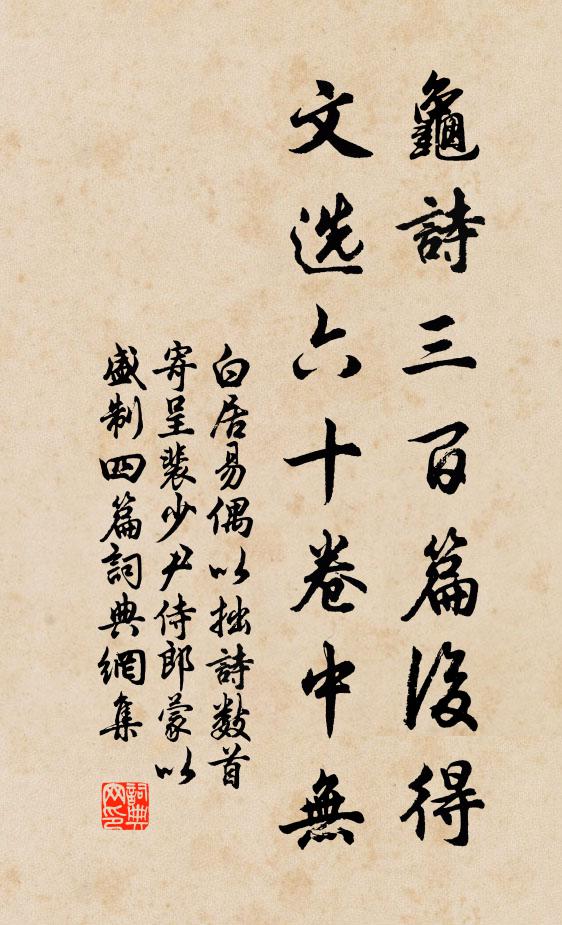 龜詩三百篇後得
文选六十卷中無
白居易偶以拙詩數首
寄呈裴少尹侍郎蒙以
盛制四篇詞典網集
詞典
网印